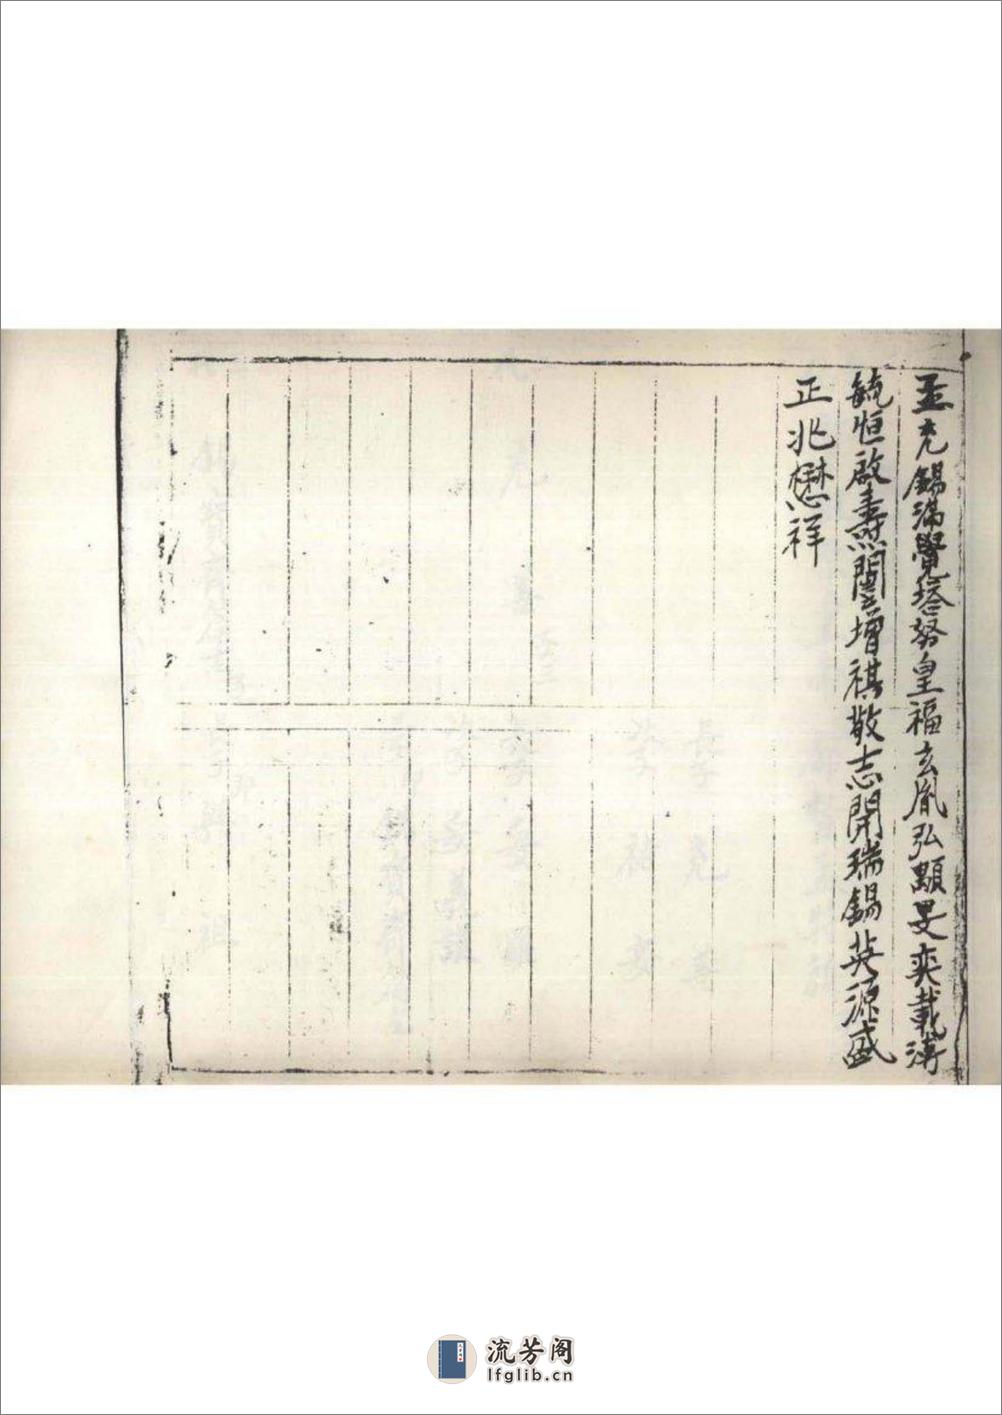 孟充錫滿覺塔努皇福玄胤弘顒旻奕載溥
毓恒啟燾熙闓增祺敬志開瑞錫英源盛
正兆懋祥
流芳阁
lfglib.cn